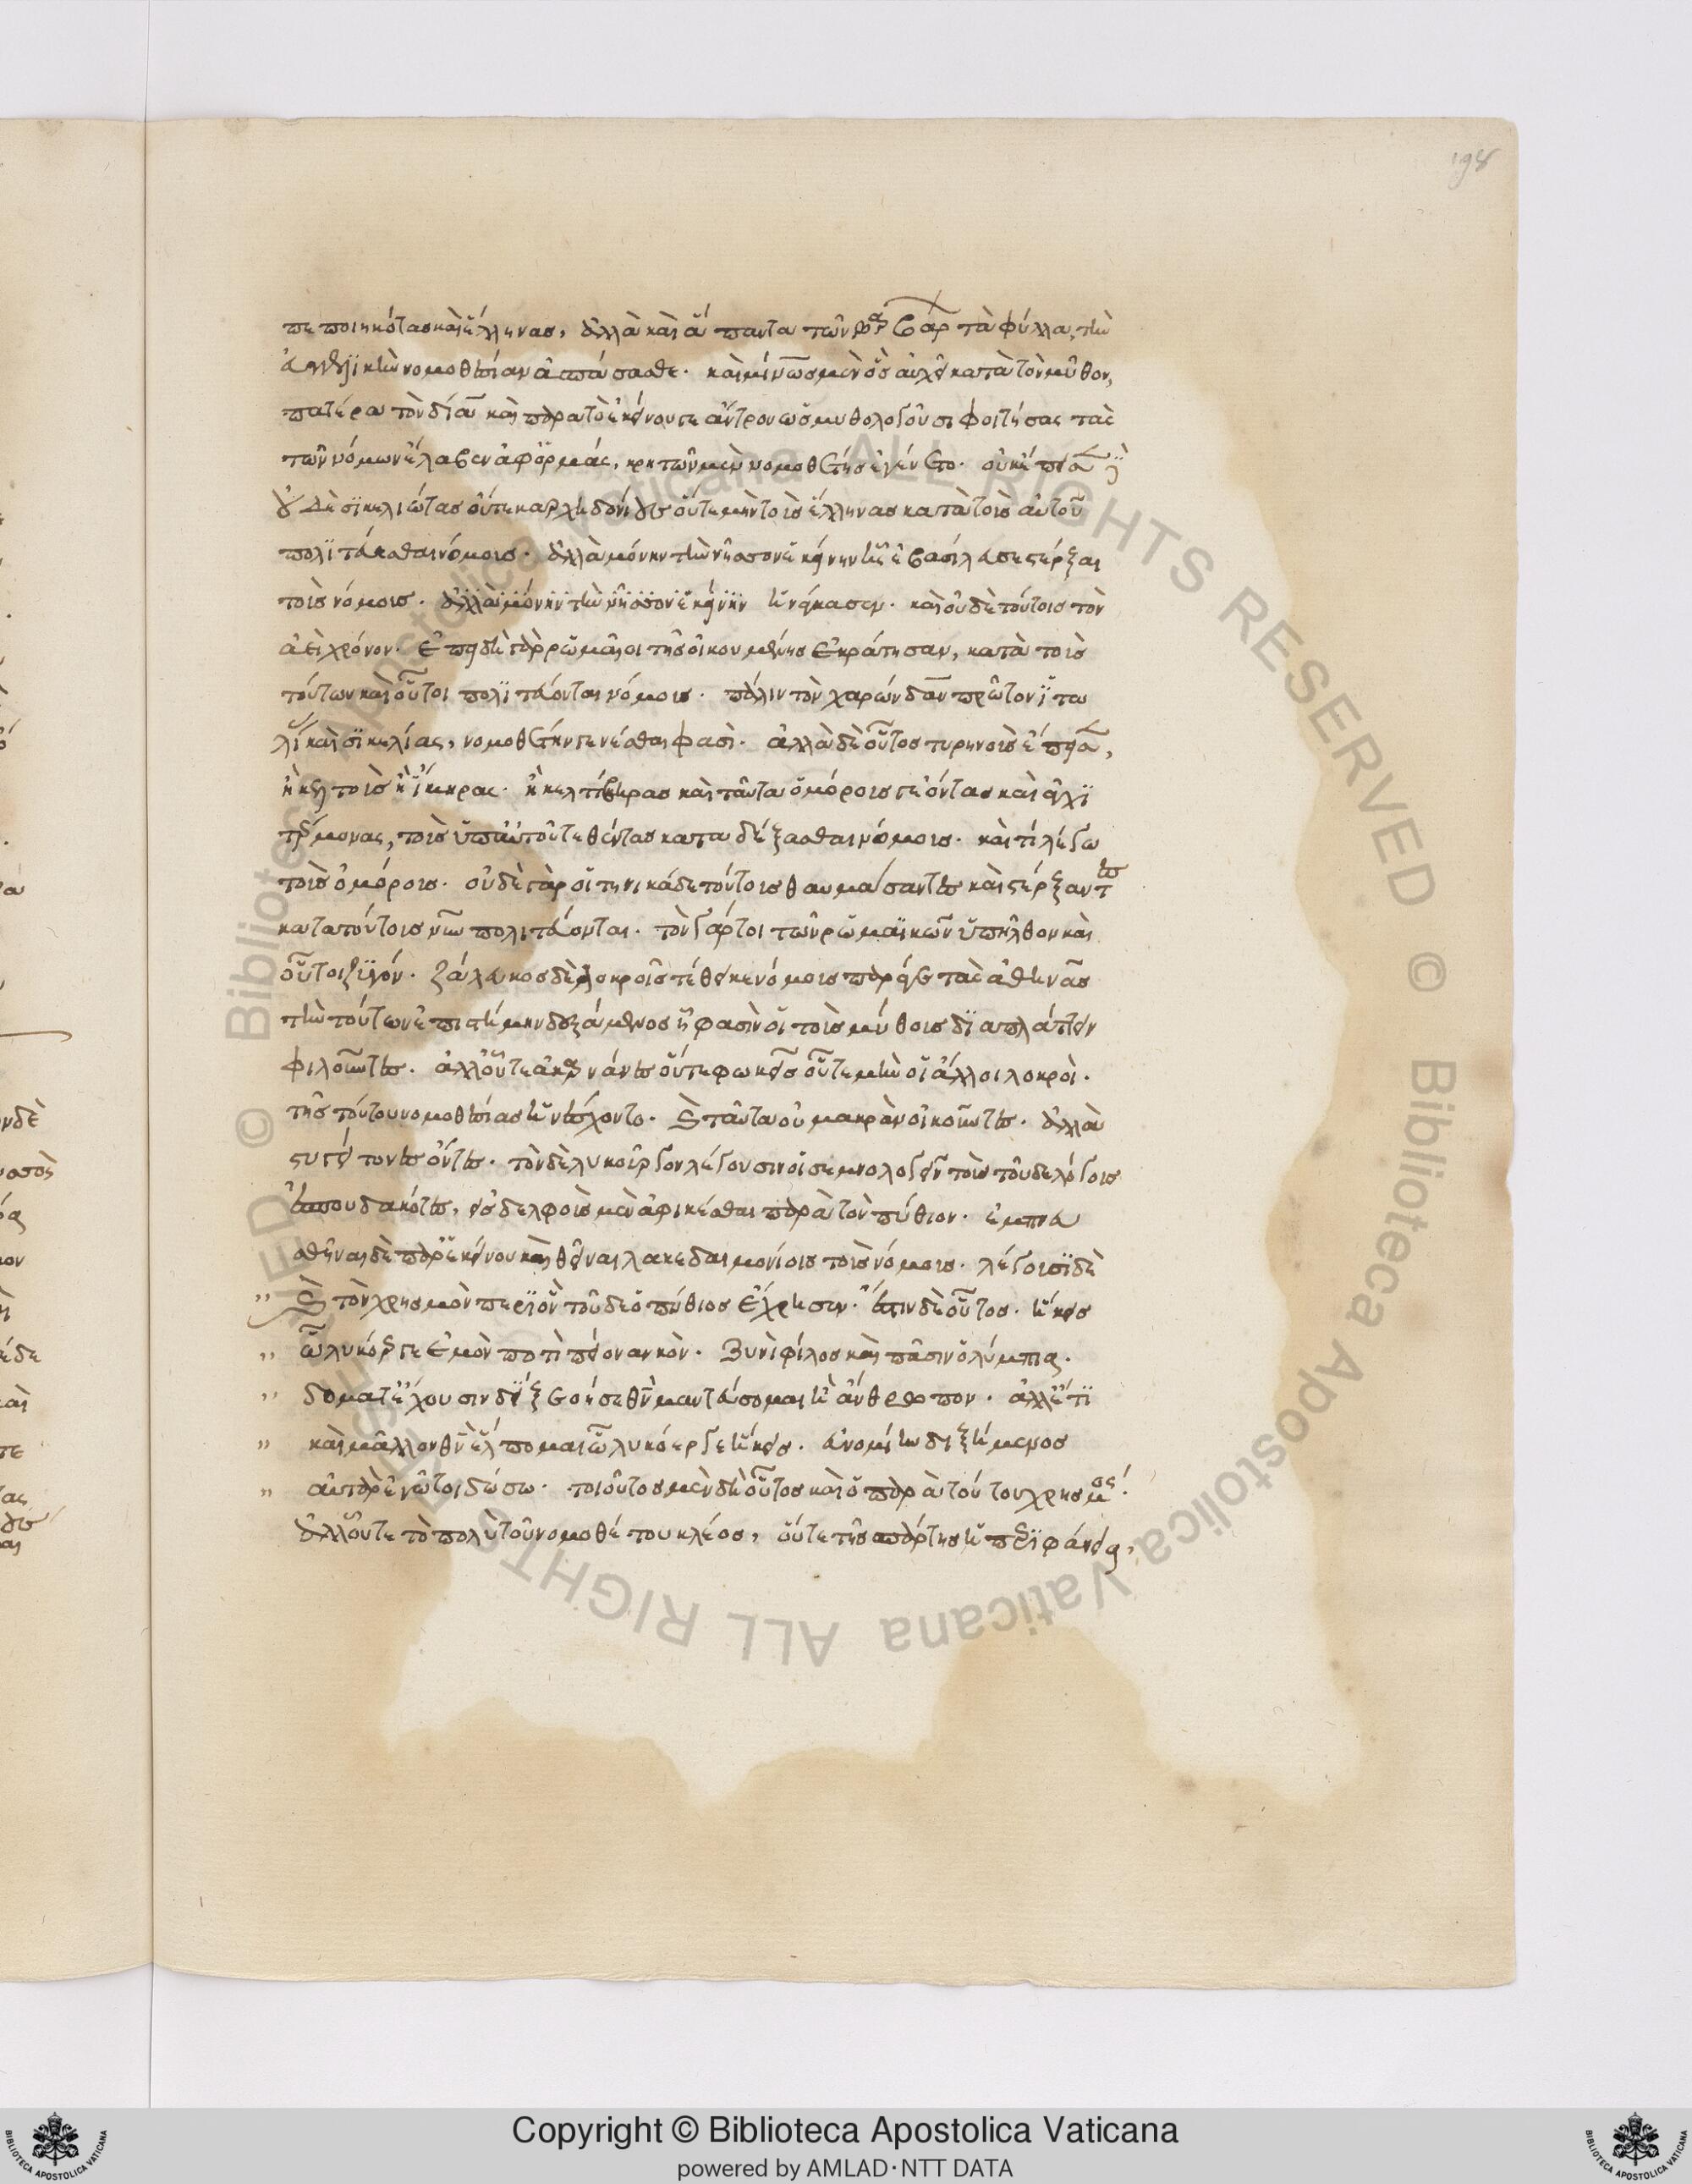 198
πεποιηκότας καὶ ἕλληνας, ἀλλὰ καὶ ἅπαντα τῶν βαρβάρ τὰ φύλλα, τὴν
νομοθεσίαν ἀσπάσασθαι. καὶ μίνως μὲν ὃς αὐχεῖ κατὰ τὸν μῦθον,
πατέρα τὸν δία καὶ παρὰ τὸ ἐκείνου γε ἄντρον ὡς μυθολογοῦσι φοιτήσας τὰς
τῶν νόμων ἔλαβεν ἀφορμάς, κρητῶν μὲν νομοθέτης ἐγένετο. οὐκ ἔπεισ
δὲ σικελιώτας οὔτε καρχηδονίους οὔτε μὴν τοῖς ἕλληνας κατὰ τοῖς αὐτοῦ
πολιτεύεσθαι νόμοις. ἀλλὰ μόνην τὴν νῆσον ἐκείνην ἧς ἐβασίλευσε στέρξαι
τοῖς νόμοις. ἀλλὰ μόνην τὴν νῆσον ἐκείνην ἠνάγκασεν. καὶ οὐδὲ τούτοις τὸν
ἀεὶ χρόνον. ἐπειδὴ γὰρ ῥωμαῖοι τῆς οἰκουμένης ἐκράτησαν, κατὰ τοῖς
τούτων καὶ οὗτοι πολιτεύονται νόμοις. πάλιν τὸν χαρώνδαν πρῶτον ἰτα
λίας καὶ σικελίας, νομοθέτην γενέσθαι φασὶ. ἀλλὰ δὲ οὗτος τυρηνοῖς ἔπεισεν,
ἢ κελτοῖς ἢ ἴβηρας. ἢ κελτίβηρας καὶ ταῦτα ὁμόροις γε ὄντας καὶ ἀγχι
τέρμονας, τοῖς ὑπ' αὐτοῦ τεθέντας καταδέξασθαι νόμοις. καὶ τί λέγω
τοῖς ὁμόροις. οὐδὲ γὰρ οἱ τηνικάδε τούτοις θαυμάσαντες καὶ στέρξαντες
κατὰ τούτοις νῦν πολιτεύονται. τὸν γάρ τοι τῶν ῥωμαϊκῶν ὑπῆλθον καὶ
οὗτοι ζυγόν. ζάλευκος δὲ λοκροῖς τέθεικε νόμοις παρὰ τῆς ἀθηνᾶς
τὴν τούτων ἐπιστήμην δεξάμενος ᾗ φασὶν οἱ τοῖς μύθοις διαπλάττειν
φιλοῦντες. ἀλλ' οὔτε ἀκαρνάνες οὔτε φωκεῖς οὔτε μὴν οἱ ἄλλοι λοκροὶ.
τῆς τούτου νομοθεσίας ἠνέσχοντο. καὶ ταῦτα οὐ μακρὰν οἰκοῦντες. ἀλλὰ
γειτονες ὄντες. τὸν δὲ λυκοῦργον λέγουσιν οἱ σεμνολογεῖν τοῖς τοῦδε λόγοις
ἐσπουδακότες, εἰς δελφοὶς μὲν ἀφικέσθαι παρὰ τὸν πύθιον. ἐμπνευ
σθῆναι δὲ παρ' ἐκείνου καὶ θεῖναι λακεδαιμονίοις τοῖς νόμοις. λέγοισι δὲ
καὶ τὸν χρησμὸν περὶ ὃν τοῦδε ὁ πύθιος ἔχρησεν. ἔστιν δὲ οὗτος. ἥκεις
ὦ λυκόεργε ἐμὸν ποτὶ πίονα νηὸν. ζηνὶ φίλος καὶ πᾶσιν ὀλύμπια.
δοματ' ἔχουσιν δίζω ἤ σε θεὸν μαντεύσομαι ἢ ἄνθρωπον. ἀλλ' ἔτι
καὶ μᾶλλον θεὸν ἔλπομαι ὦ λυκόεργε ἥκεις. εὐνομίην διζήμενος
αὐτὰρ ἐγώ τοι δώσω. τοιοῦτος μὲν δὴ οὗτος καὶ ὁ παρὰ τούτου χρησμός.
ἀλλ' οὔτε τὸ πολὺ τοῦ νομοθέτου κλέος, οὔτε τῆς σπάρτης ἡ περιφάνεια,
Copyright © Biblioteca Apostolica Vaticana
powered by AMLAD·NTT DATA